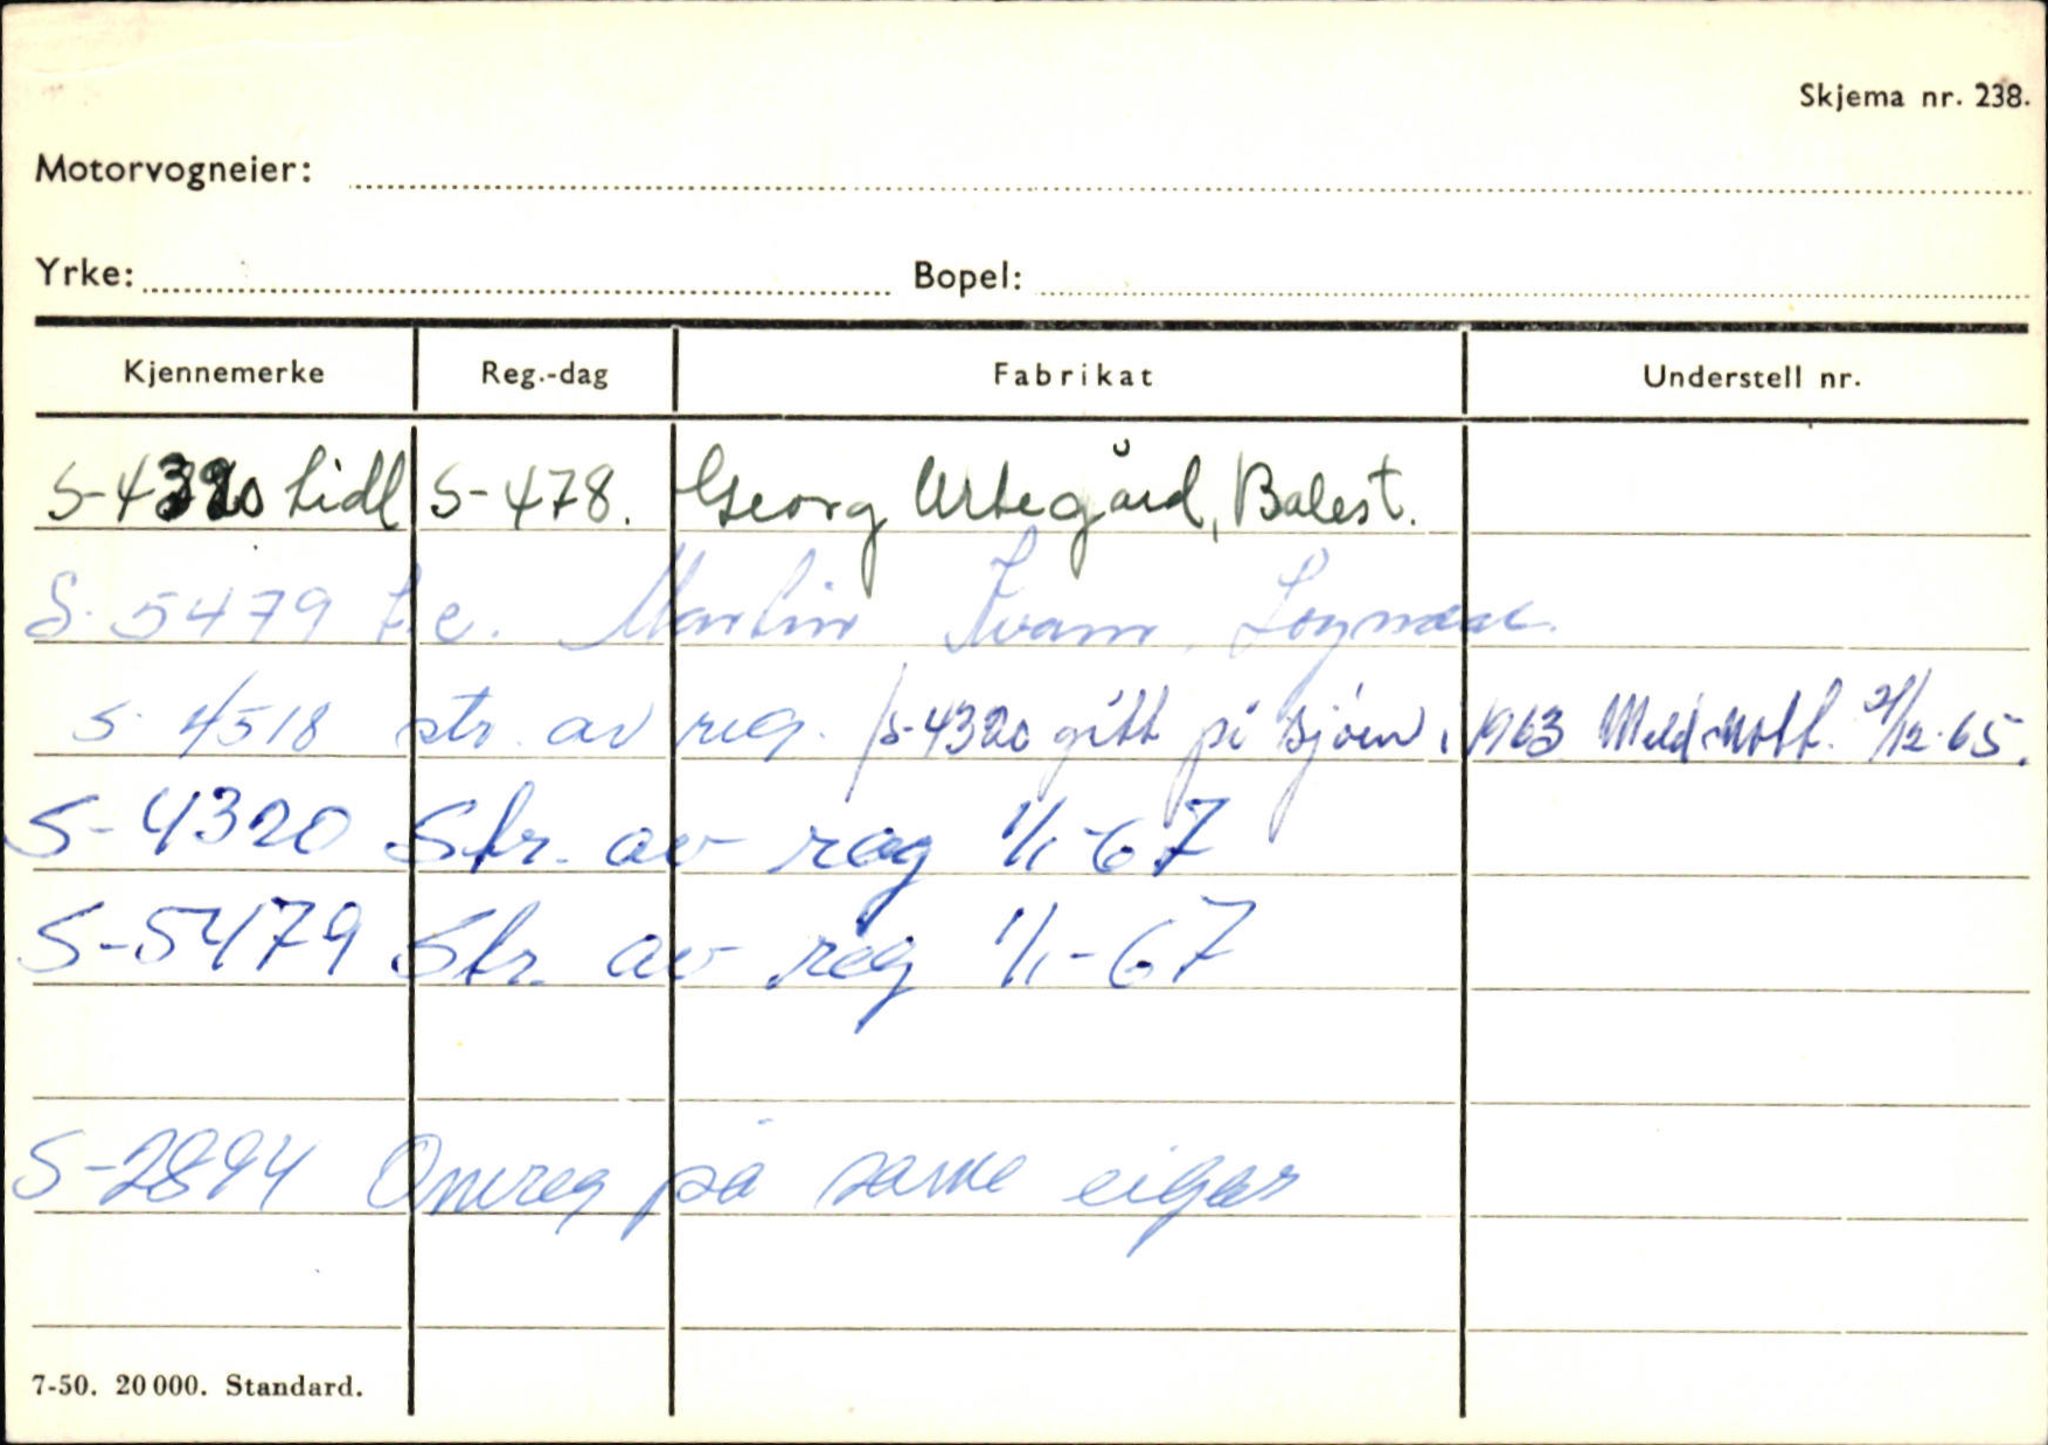 Skjema nr. 238.
Motorvogneier:
Yrke: Bopel:
Kjennemerke Reg.-dag Fabrikat Understell nr.
S-4320 tidl S-478. Georg Urtegård, Balest.
S-5479 t.e. Martin Kvam,
S-4518 str. av reg. /S-4320 gått på sjøen, 1963 Meld. mott. 21/12-65.
S-4320 Str. av reg 1/1-67
S-5479 Str. av reg 1/1-67
S-2894 Omreg på same eigar
7-50. 20 000. Standard.